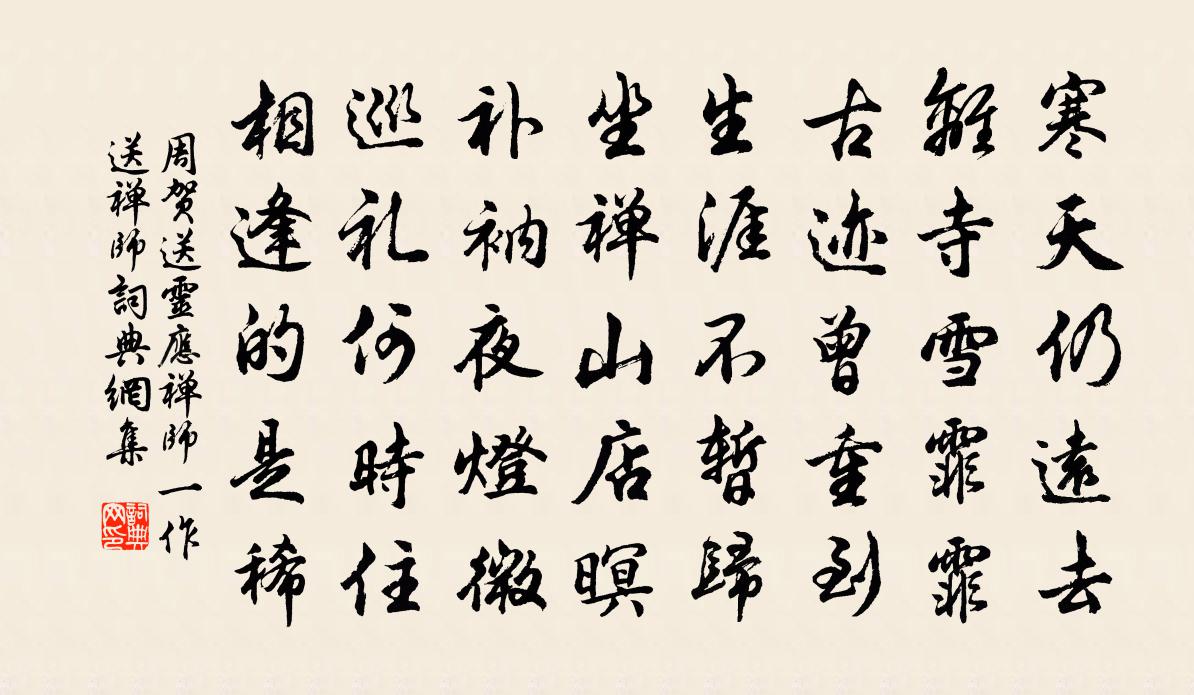 寒天仍遠去
離寺雪霏霏
古迹曾重到
生涯不暫歸
坐禅山店暝
补衲夜燈微
巡礼何時住
相逢的是稀
周贺送靈應禅師一作
送禅師詞典網集
詞典网印